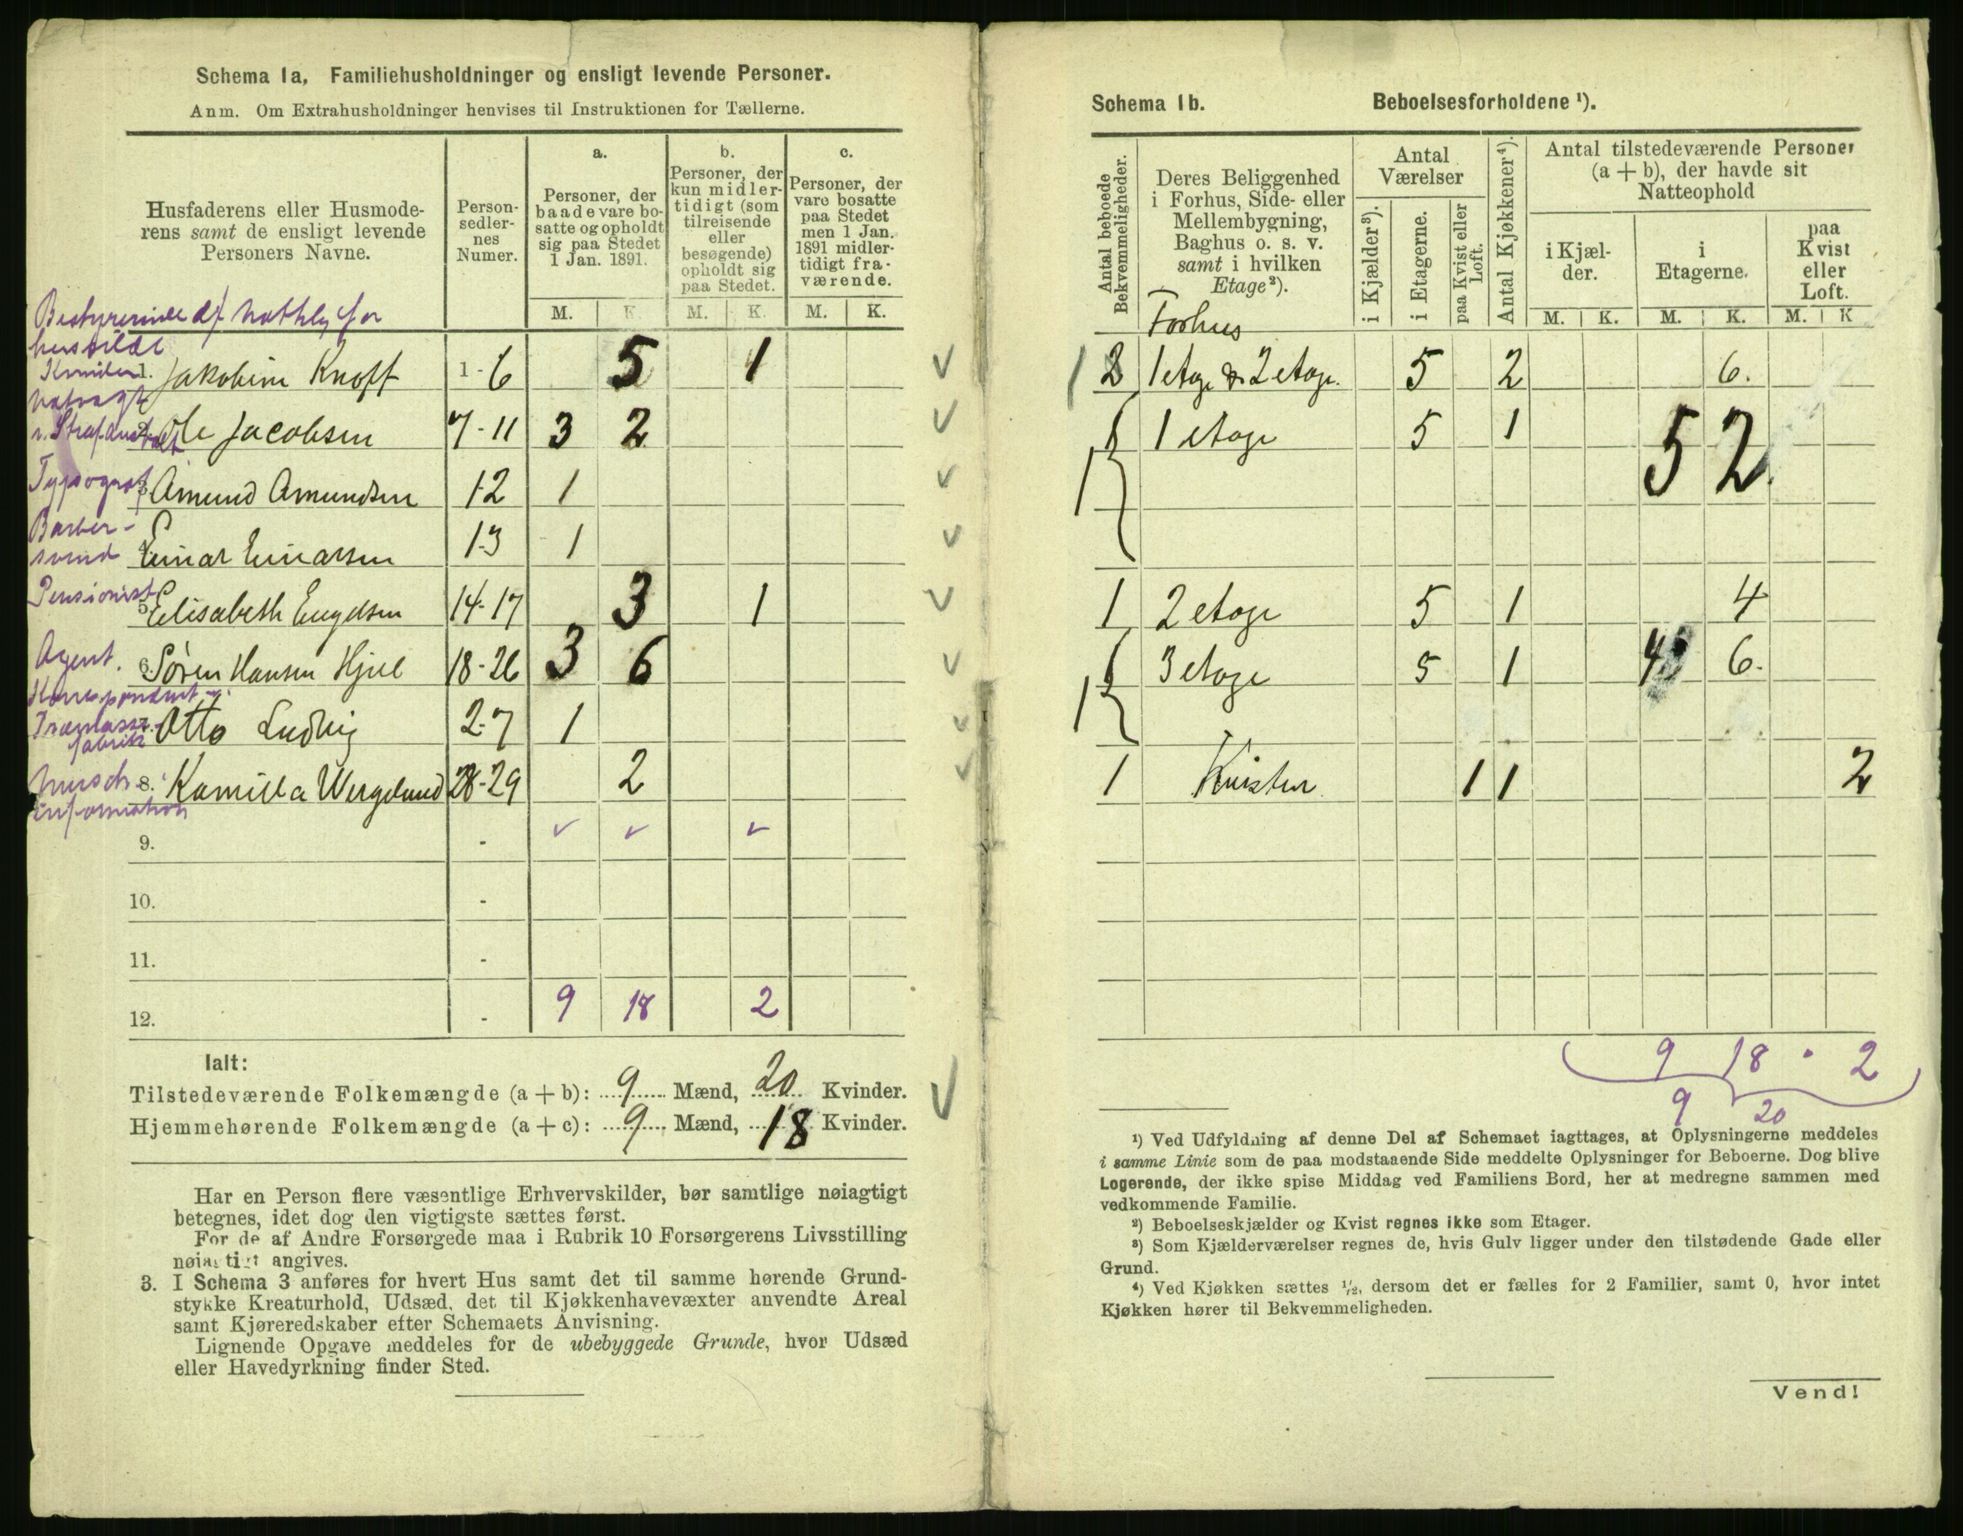 Schema 1a, Familiehusholdninger og ensligt levende Personer.
Anm. Om Extrahusholdninger henvises til Instruktionen for Tællerne.
Husfaderens eller Husmoderens samt de ensligt levende Personers Navne.
Personsedlernes Numer.
a.
Personer, der baade vare bosatte og opholdt sig paa Stedet 1 Jan. 1891.
b.
Personer, der kun midlertidigt (som tilreisende eller besøgende) opholdt sig paa Stedet.
c.
Personer, der vare bosatte paa Stedet men 1 Jan. 1891 midlertidigt fraværende.
M. K. M. K. M. K.
1. Jakobine Knoff 1-6 5 1
2. Ole Jacobsen 7-11 3 2
Typograf 3. Amund Amundsen 12 1
Barbersvend 4. Einar Einarsen 13 1
Pensionist 5. Elisabeth Engelsen 14-17 3 1
Agent. 6. Søren Hansen Hjul 18-26 3 6
7. Otto Ludvig 27 1
8. Kamilla Wergeland 28-29 2
information
9. -
10. -
11. -
12. - 9 18 2
Ialt:
Tilstedeværende Folkemængde (a + b): 9 Mænd, 20 Kvinder.
Hjemmehørende Folkemængde (a + c): 9 Mænd, 18 Kvinder.
Har en Person flere væsentlige Erhvervskilder, bør samtlige nøiagtigt
betegnes, idet dog den vigtigste sættes først.
For de af Andre Forsørgede maa i Rubrik 10 Forsørgerens Livsstilling
nøiagtigt angives.
3. I Schema 3 anføres for hvert Hus samt det til samme hørende Grund-
stykke Kreaturhold, Udsæd, det til Kjøkkenhavevæxter anvendte Areal
samt Kjøreredskaber efter Schemaets Anvisning.
Lignende Opgave meddeles for de ubebyggede Grunde, hvor Udsæd
eller Havedyrkning finder Sted.
Schema 1b. Beboelsesforholdene ¹).
Antal beboede Bekvemmeligheder.
Deres Beliggenhed i Forhus, Side- eller Mellembygning, Baghus o. s. v. samt i hvilken Etage²).
Antal Værelser
i Kjælder³).
i Etagerne.
paa Kvist eller Loft.
Antal Kjøkkener⁴).
Antal tilstedeværende Personer (a + b), der havde sit Natteophold
i Kjælder.
i Etagerne.
paa Kvist eller Loft.
M. K. M. K. M. K
Forhus
1 2 1 etage & 2 etage. 5 2 6.
1 1 etage 5 1 5 2
1 2 etage 5 1 4
1 3 etage 5 1 4 6.
1 Kvisten 1 1 2
9 18 2
9 20
¹) Ved Udfyldning af denne Del af Schemaet iagttages, at Oplysningerne meddeles
i samme Linie som de paa modstaaende Side meddelte Oplysninger for Beboerne. Dog blive
Logerende, der ikke spise Middag ved Familiens Bord, her at medregne sammen med
vedkommende Familie.
²) Beboelseskjælder og Kvist regnes ikke som Etager.
³) Som Kjælderværelser regnes de, hvis Gulv ligger under den tilstødende Gade eller
Grund.
⁴) Ved Kjøkken sættes ½, dersom det er fælles for 2 Familier, samt 0, hvor intet
Kjøkken hører til Bekvemmeligheden.
Vend!